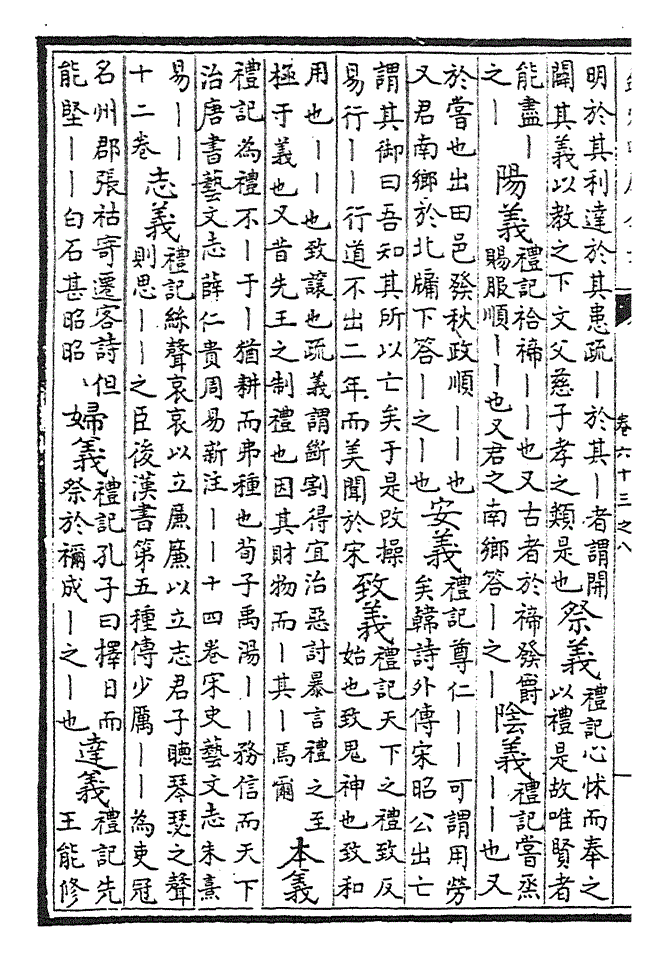 卷六十三之八
明於其利達於其患疏｜於其｜者謂開
闢其義以教之下文父慈子孝之類是也
祭義
禮記心怵而奉之
以禮是故唯賢者
能盡｜
之｜
陽義
禮記祫禘｜｜也又古者於禘發爵
賜服順｜｜也又君之南鄉答｜之｜
陰義
禮記嘗烝
｜｜也又
於嘗也出田邑發秋政順｜｜也
又君南鄉於北牖下答｜之｜也
安義
禮記尊仁｜｜可謂用勞
矣韓詩外傳宋昭公出亡
謂其御曰吾知其所以亡矣于是改操
易行｜｜行道不出二年而美聞於宋
致義
禮記天下之禮致反
始也致鬼神也致和
用也｜｜也致讓也疏義謂斷割得宜治惡討暴言禮之至
極于義也又昔先王之制禮也因其財物而｜其｜焉爾
本義
禮記為禮不｜于｜猶耕而弗種也荀子禹湯｜｜務信而天下
治唐書藝文志薛仁貴周易新注｜｜十四卷宋史藝文志朱熹
易｜｜
十二卷
志義
禮記絲聲哀哀以立廉廉以立志君子聽琴瑟之聲
則思｜｜之臣後漢書第五種傳少厲｜｜為吏冠
名州郡張祜寄遷客詩但
能堅｜｜白石甚昭昭
婦義
禮記孔子曰擇日而
祭於禰成｜之｜也
達義
禮記先
王能修